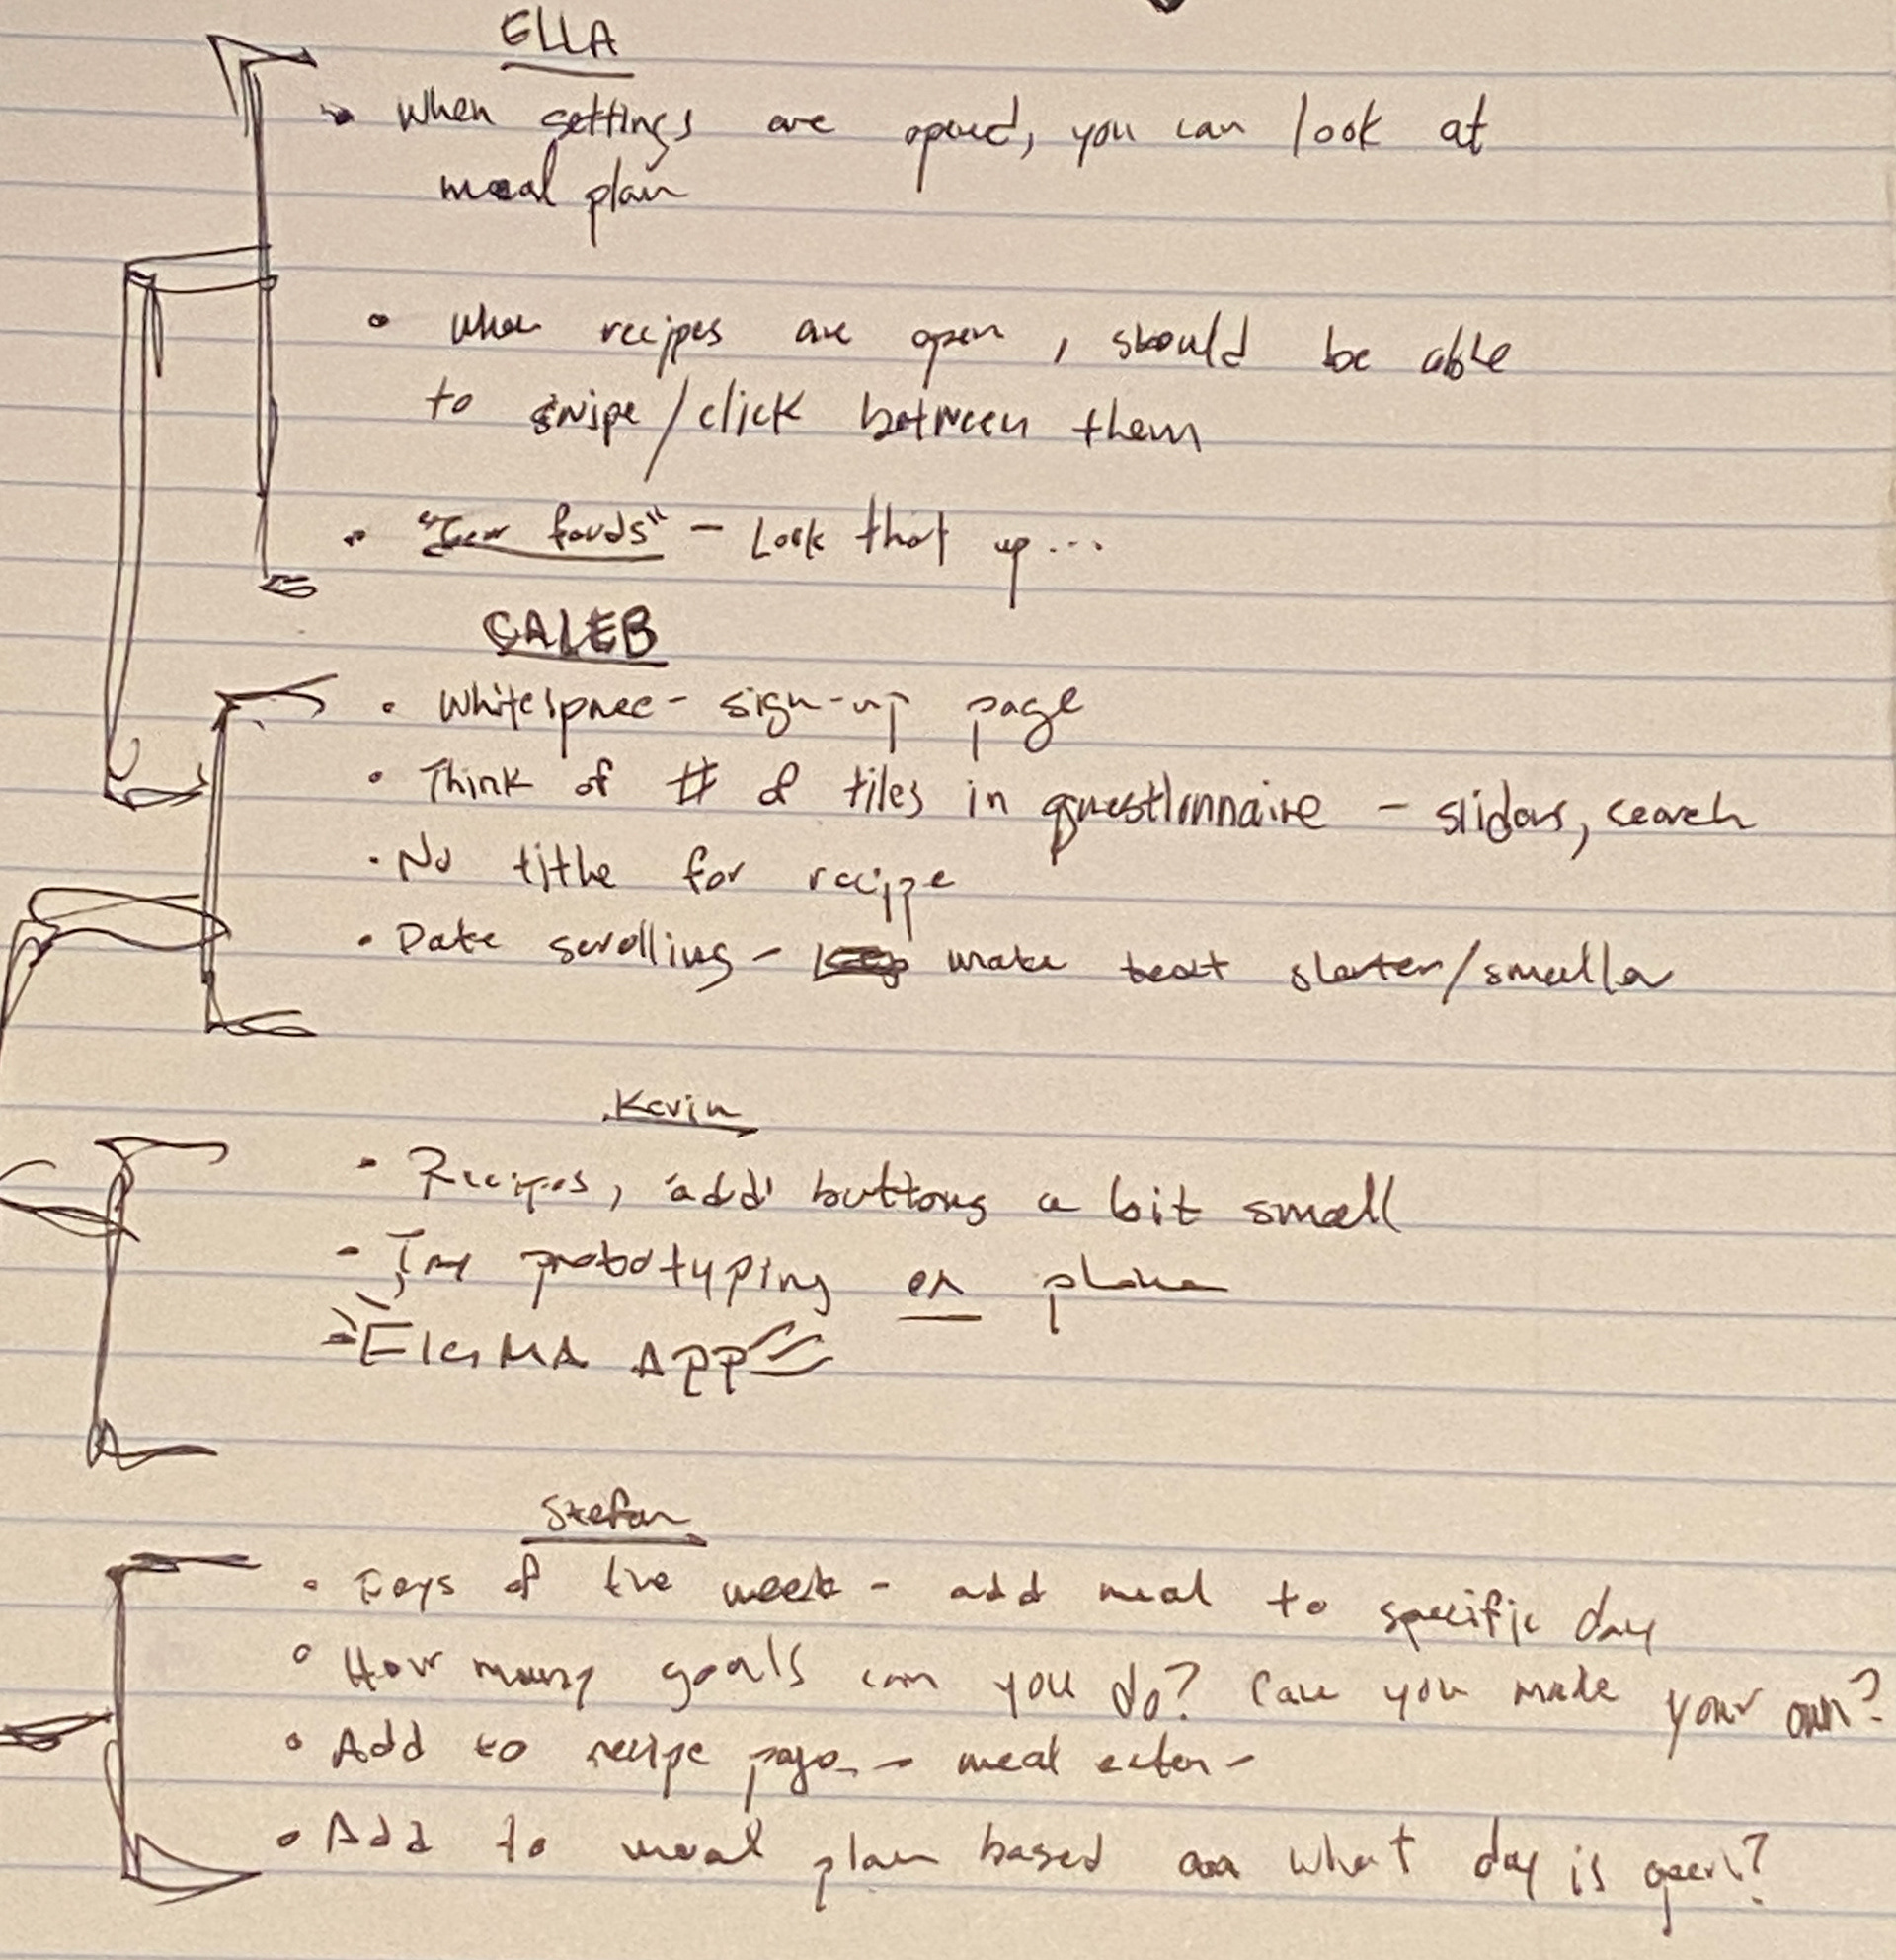 ELLA
• When settings are opened, you can look at
meal plan
• When recipes are open, should be able
to swipe/click between them
• " foods" - Look that up...
CALEB
• Whitespace - sign-up page
• Think of # of tiles in questionnaire - sliders, search
• No title for recipe
• Date scrolling - make text shorter/smaller
Kevin
• Recipes, 'add' buttons a bit small
- Try prototyping on phone
- FIGMA APP
Stefan
• Days of the week - add meal to specific day
• How many goals can you do? Can you make your own?
• Add to recipe page - meal -
• Add to meal plan based on what day is open?